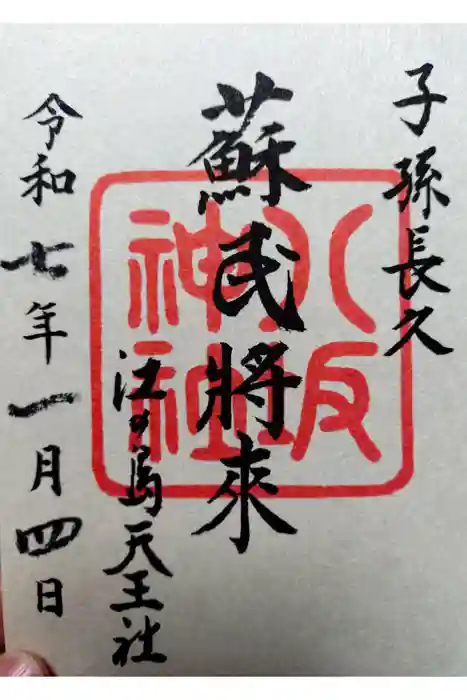 子孫長久
蘇民將來
八坂神社
江の島天王社
令和七年一月四日